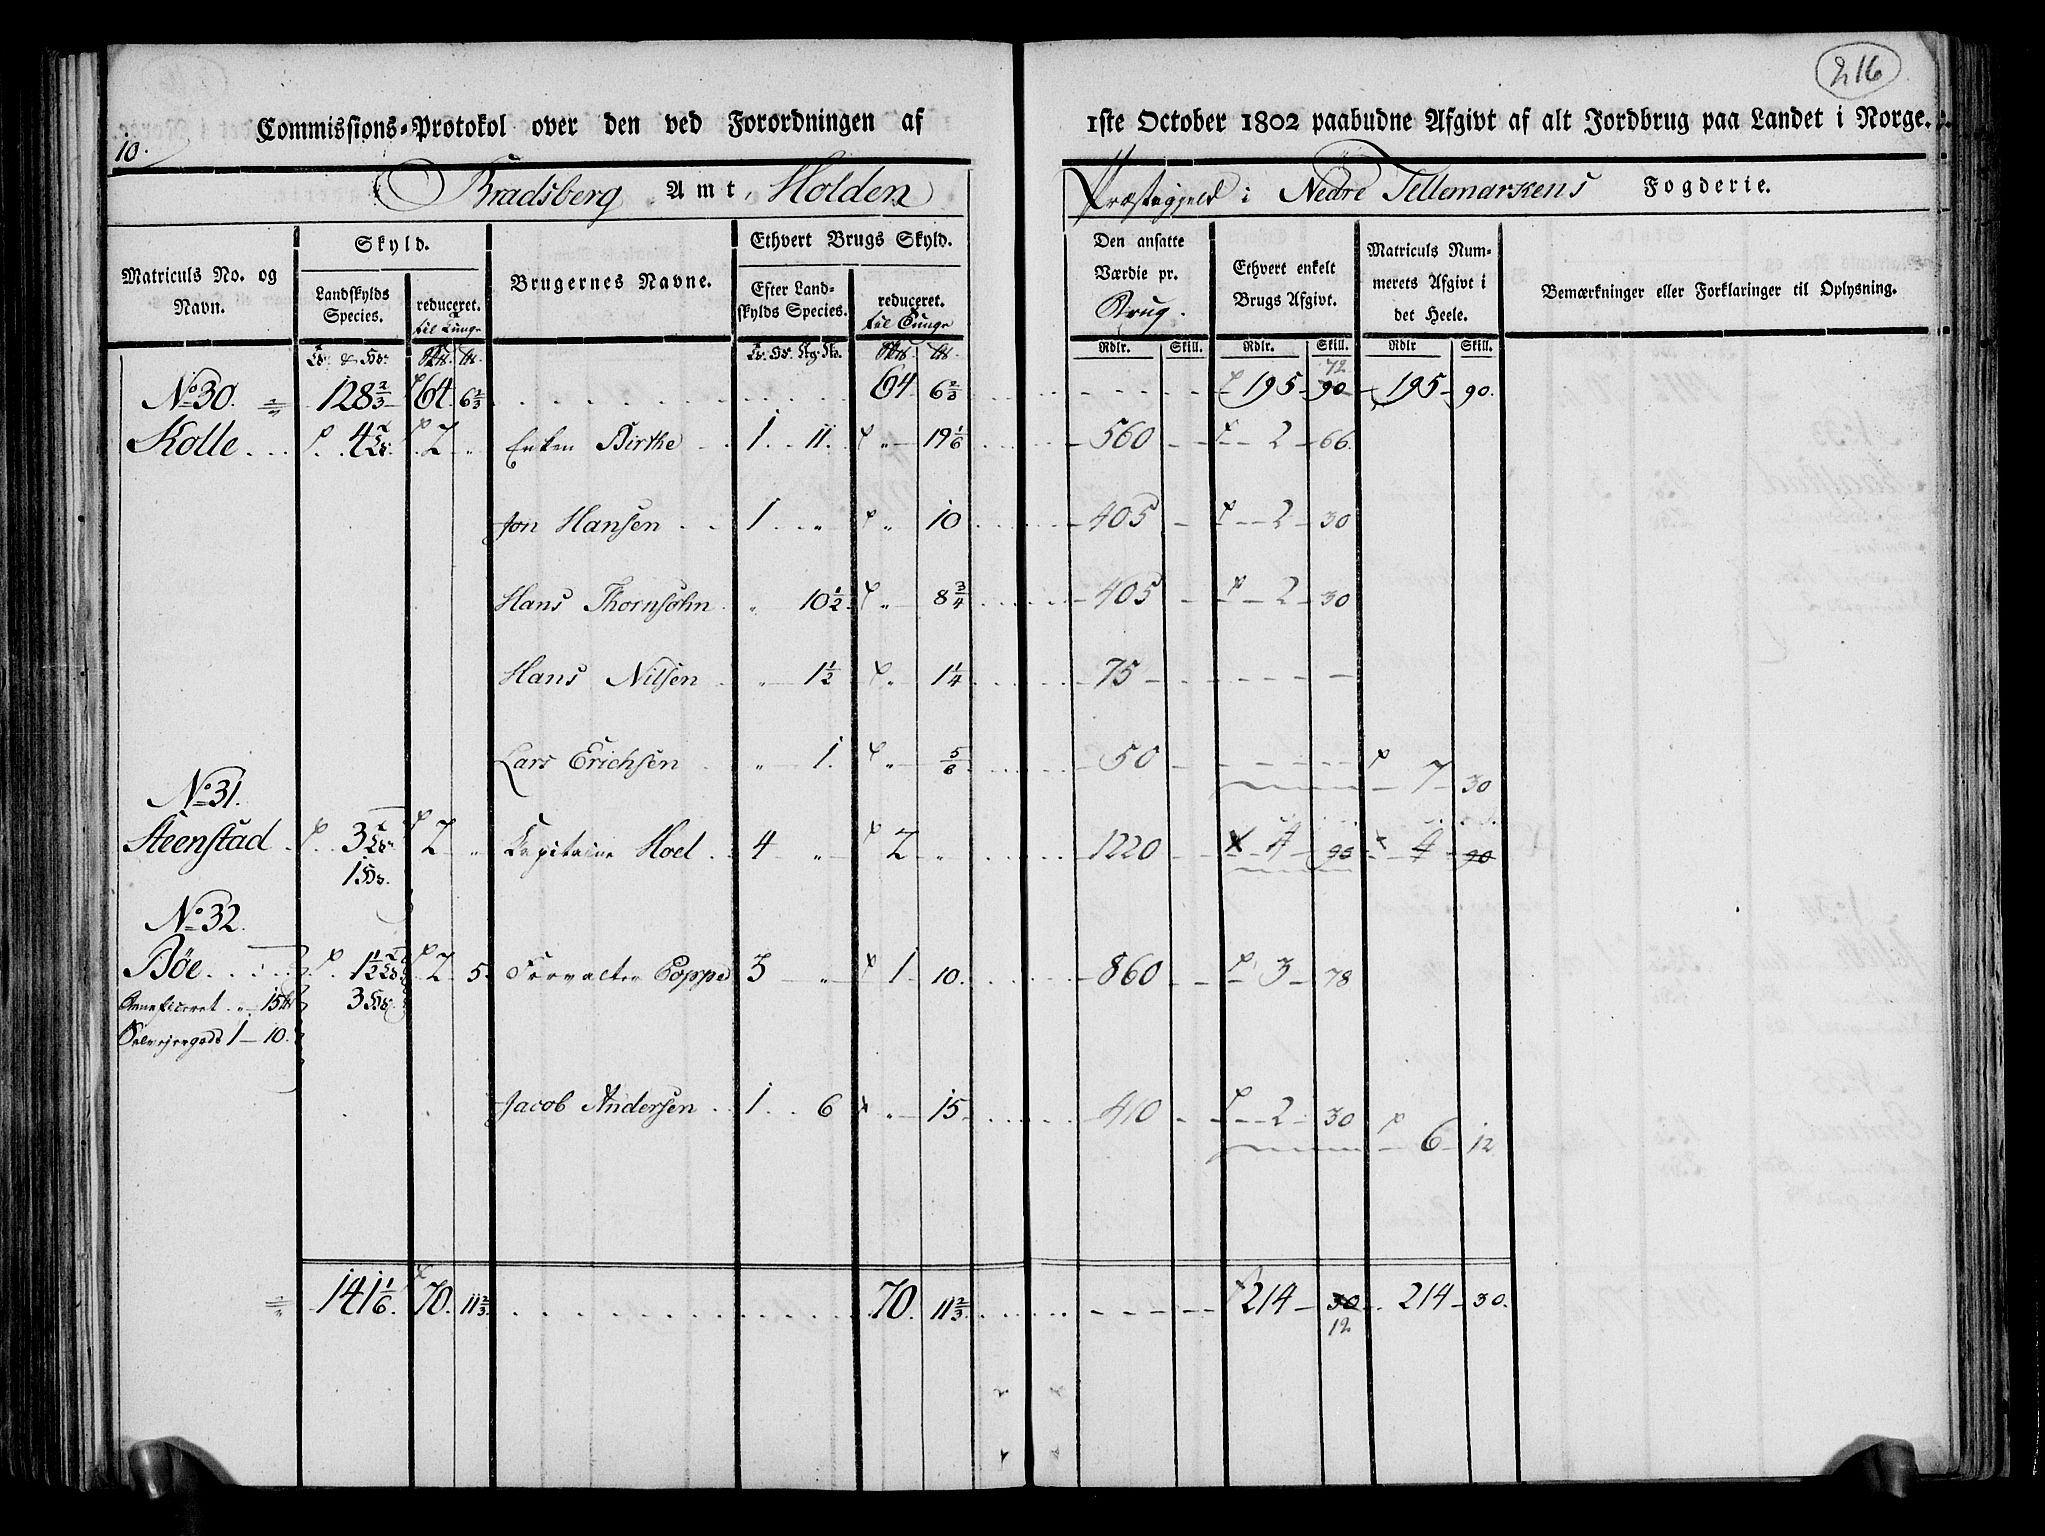 216
Commissions-Protokol over den ved Forordningen af 1ste October 1802 paabudne Afgivt af alt Jordbrug paa Landet i Norge.
10.
Bradsberg Amt, Holden Præstegjeld i Nedre Tellemarkens Fogderie.
Matriculs No. og Navn.
Skyld.
Landskylds Species.
reduceret. til Tunge
Brugernes Navne.
Ethvert Brugs Skyld.
Efter Landskylds Species.
reduceret. til Tunge
Den ansatte Værdie pr. Brug.
Ethvert enkelt Brugs Afgivt.
Matriculs Nummerets Afgivt i det Heele.
Bemærkninger eller Forklaringer til Oplysning.
Rdlr. Skill. Rdlr. Skill. Rdlr Skill.
72
No 30. 128 2/3 64. 6 2/3 64 6 2/3 195 90 195 90.
Kolle 4 2 Enken Birthe 1. 11. 19 1/6 560 2 66.
Jon Hansen 1 10 405 2 30
Hans Thornsøhn 10 1/2 8 3/4 405 2 30
Hans Nilsen 1 1/2 1 1/4 75
Lars Erichsen 1. 5/6 50 7 30
No 31.
Steenstad 3 2 Capitaine Hoel 4 2 1220 4 90 4 90
1
No 32.
Bøe 1 1/2 2 5. Forvalter Poppe 3 1 10. 860 3 78
Beneficeret 15 3
Selvejergods 1 10.
Jacob Andersen 1. 6 15 410 2 30 6 12
141 1/6. 70. 11 2/3 70. 11 2/3 214 30 214 30.
12